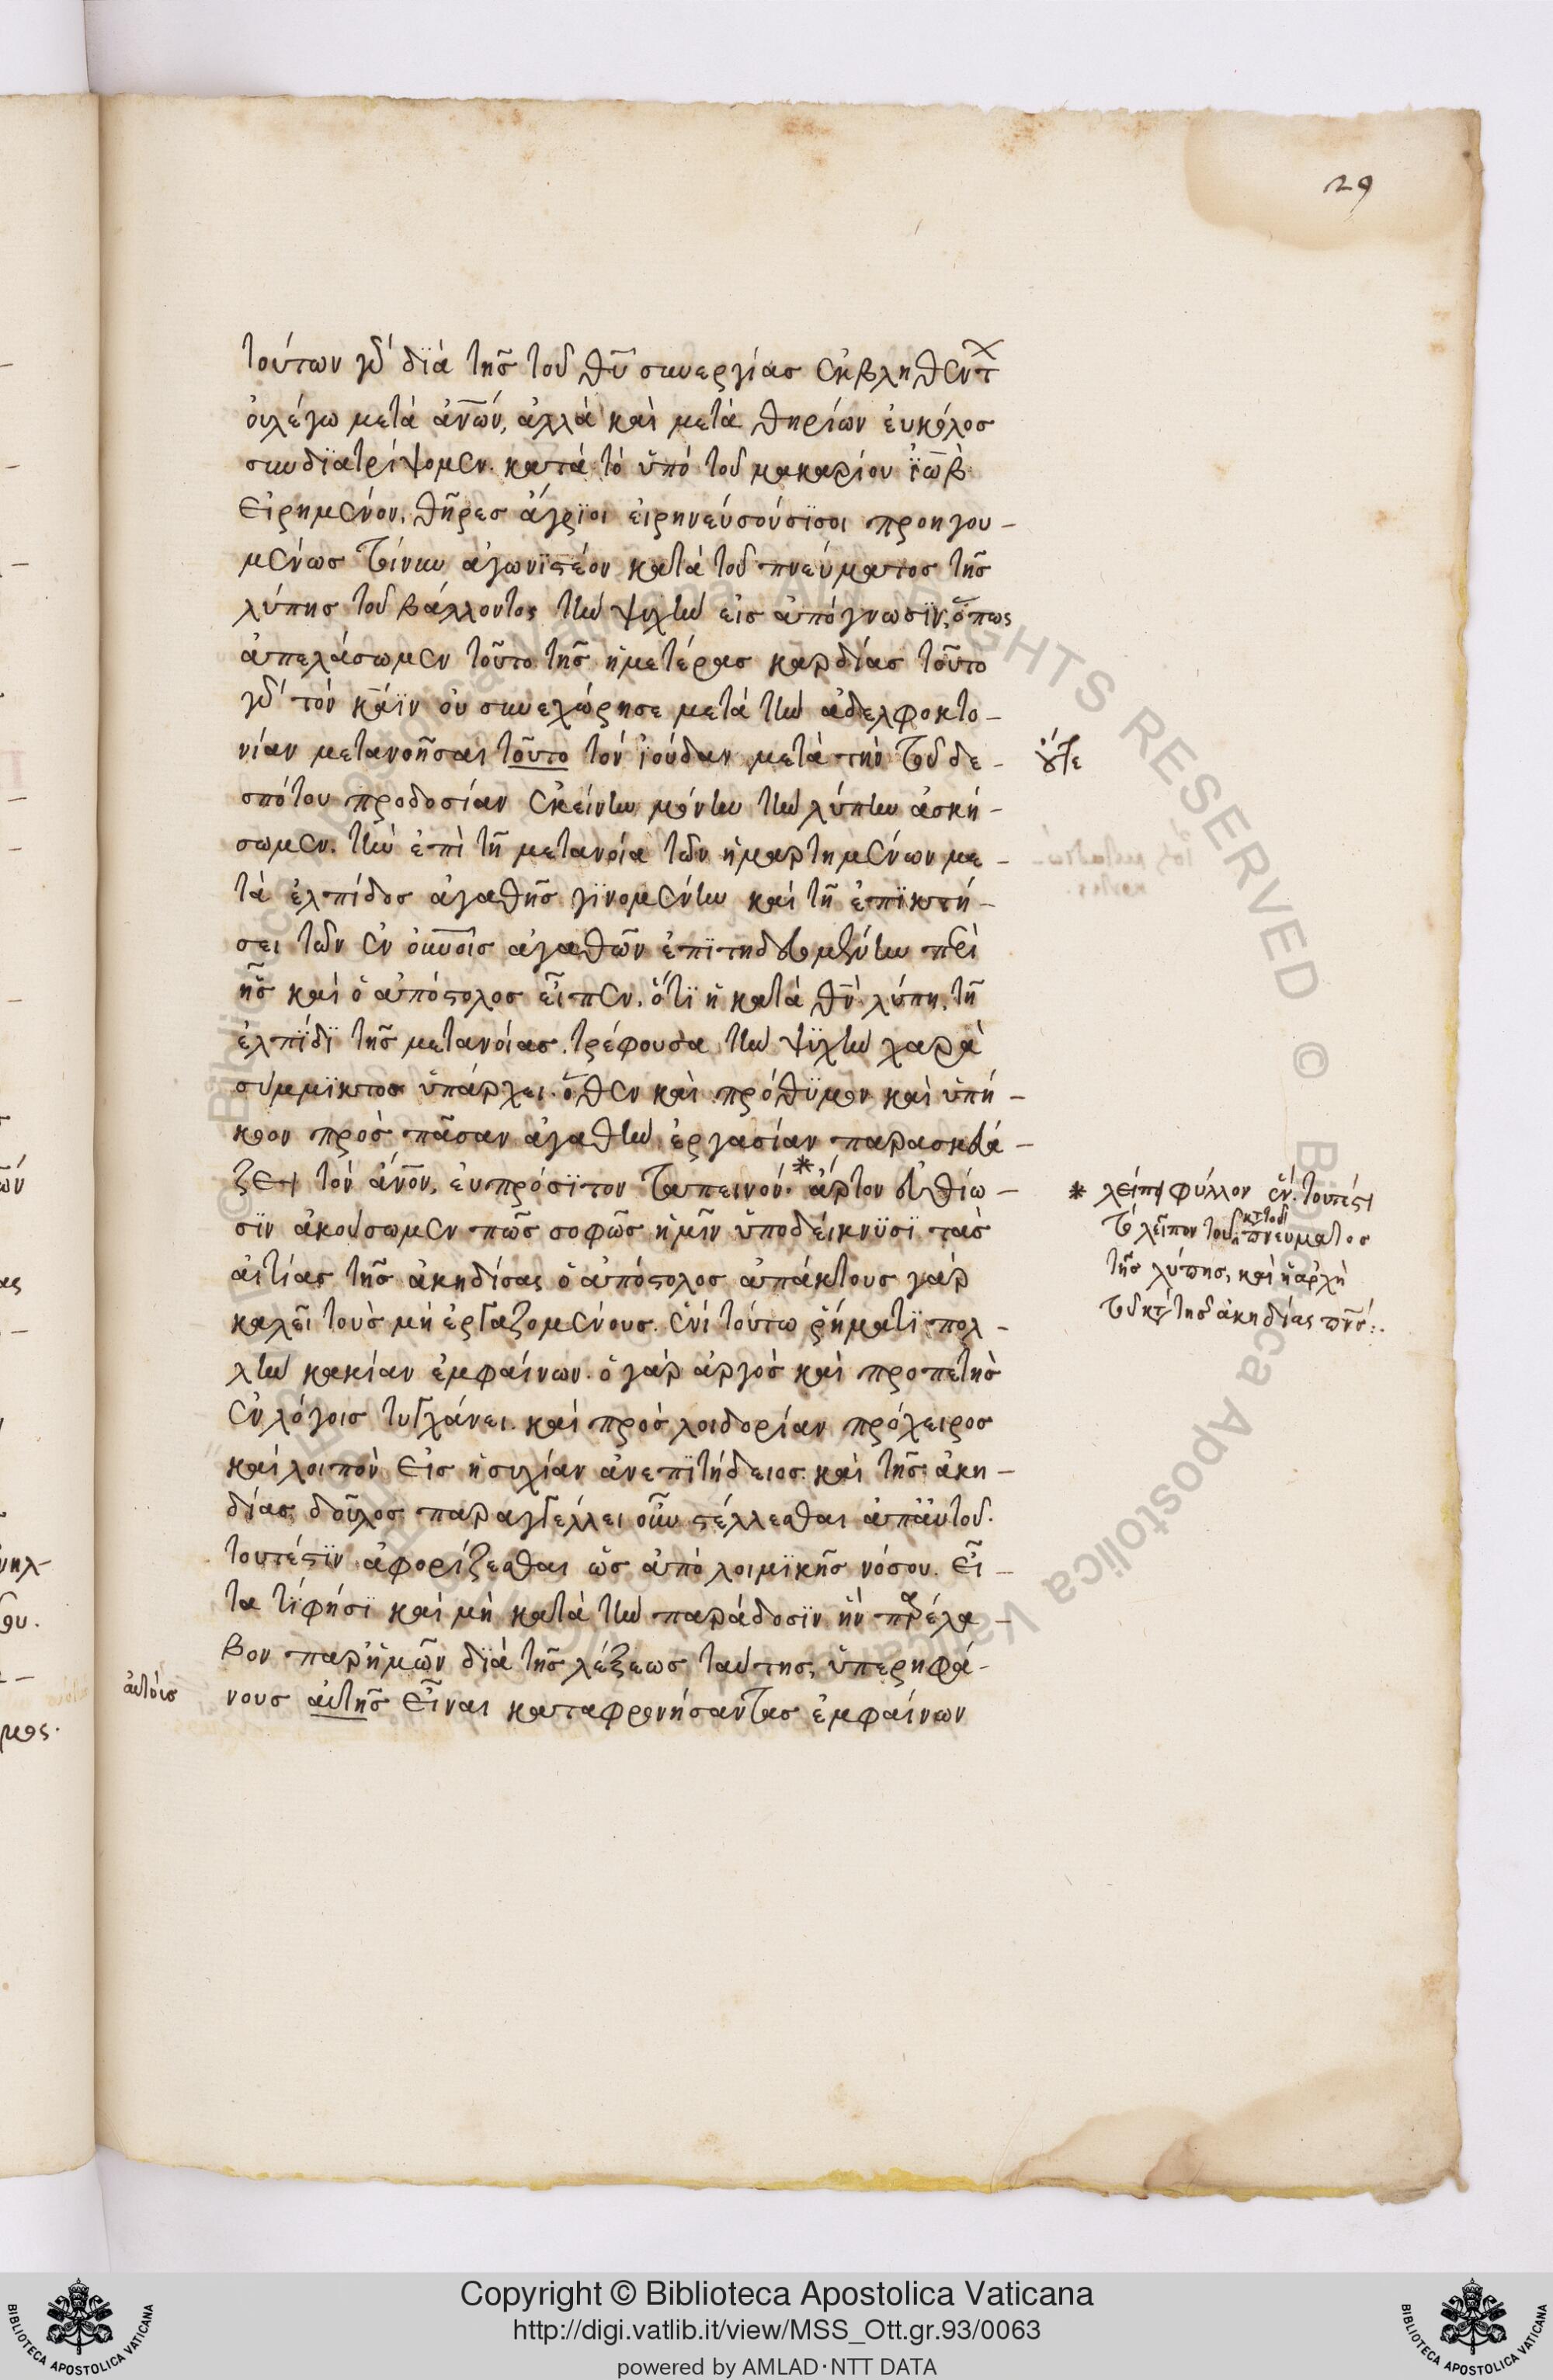 29
τούτων γὰρ διὰ τῆς τοῦ θῦ συνεργίας ἐκβληθέντ
οὐ λέγω μετὰ ἀν̅ων, ἀλλὰ καὶ μετὰ θηρίων ἐυκόλοσ
συνδϊατρίψομεν. κατὰ τὸ ὑπὸ τοῦ μακαρίου ἰὼβ
εἰρημένον, θῆρες ἄγρϊοι εἰρηνεύσούσϊσοι προηγου-
μένωσ τίνυν ἀγωνϊστέον κατὰ τοῦ πνεύματος τῆς
λύπης τοῦ βάλλοντος τὴν ψυχὴν εἰς ἀπόγνωσϊν, ὅπως
ἀπελάσωμεν τοῦτο τῆς ἡμετέρας καρδίας τοῦτο
γὰρ τὸν κάϊν οὐ συνεχώρησε μετὰ τὴν ἀδελφοκτο-
νίαν μετανοῆσαι τοῦτο τὸν ἰούδαν μετὰ τὴν τοῦ δε-
οὔτε
σπότου προδοσίαν ἐκείνην μόνην τὴν λύπην ἀσκή-
σωμεν. τὴν ἐπὶ τῆ μετανοία τῶν ἡμαρτημένων με-
τὰ ἐλπίδος ἀγαθῆς γϊνομένην καὶ τῆ ἐπϊκτή-
σει τῶν ἐν οὐνοῖς ἀγαθῶν ἐπϊτηδευμένην περὶ
ἧς καὶ ὁ ἀπόστολος εἶπεν. ὅτϊ ἡ κατὰ θν̅ λύπη, τῆ
ἐλπίδϊ τῆς μετανοίας. τρέφουσα τὴν ψϋχὴν χαρᾶ
σύμμϊκτος ὑπάρχει. ὅθεν καὶ πρόθϋμον καὶ ὑπή-
κοον πρὸς πᾶσαν ἀγαθὴν ἐργασίαν παρασκευά-
ζει τὸν ἄνον, ἐυπρόσϊτον ταπεινόν.* ἄρτον ἐσθίω-
σϊν ἀκούσωμεν πῶς σοφῶς ἡμῖν ὑποδείκνϋσϊ τὰς
αἰτίας τῆς ἀκηδίσας ὁ ἀπόστολος ἀτάκτους γὰρ
καλεῖ τοὺς μὴ ἐργαζομένους. ἑνὶ τούτω ῥήματϊ πολ-
λὴν κακίαν ἐμφαίνων. ὁ γὰρ ἀργὸς καὶ προπετὴς
ἐν λόγοις τυγχάνει. καὶ πρὸς λοιδορίαν πρόχειρος
καὶ λοιπὸν εἰς ἡσυχίαν ἀνεπϊτήδειος. καὶ τῆς ἀκη-
δίας δοῦλος παραγγέλλει οὖν στέλλεσθαι ἀπ' αὐτοῦ.
τουτέστϊν ἀφορίζεσθαι ὡς ἀπὸ λοιμϊκῆς νόσου. εἶ-
τα τί φήσϊ καὶ μὴ κατὰ τὴν παράδοσϊν ἣν παρέλα-
βον παρ' ἡμῶν διὰ τῆς λέξεως ταύτης, ὑπερηφά-
νους αὐτῆς εἶναι καταφρονήσαντας ἐμφαίνων
αὐτοὺς
* λείπει φύλλον ἕν. τουτέστι
τὸ λεῖπον τοῦ κτ τοῦ πνεύματος
τῆς λύπης, καὶ ἡ ἀρχὴ
τοῦ κτ τῆς ἀκηδίας πνς:.
Copyright © Biblioteca Apostolica Vaticana
http://digi.vatlib.it/view/MSS_Ott.gr.93/0063
powered by AMLAD·NTT DATA
BIBLIOTECA APOSTOLICA VATICANA
BIBLIOTECA APOSTOLICA VATICANA